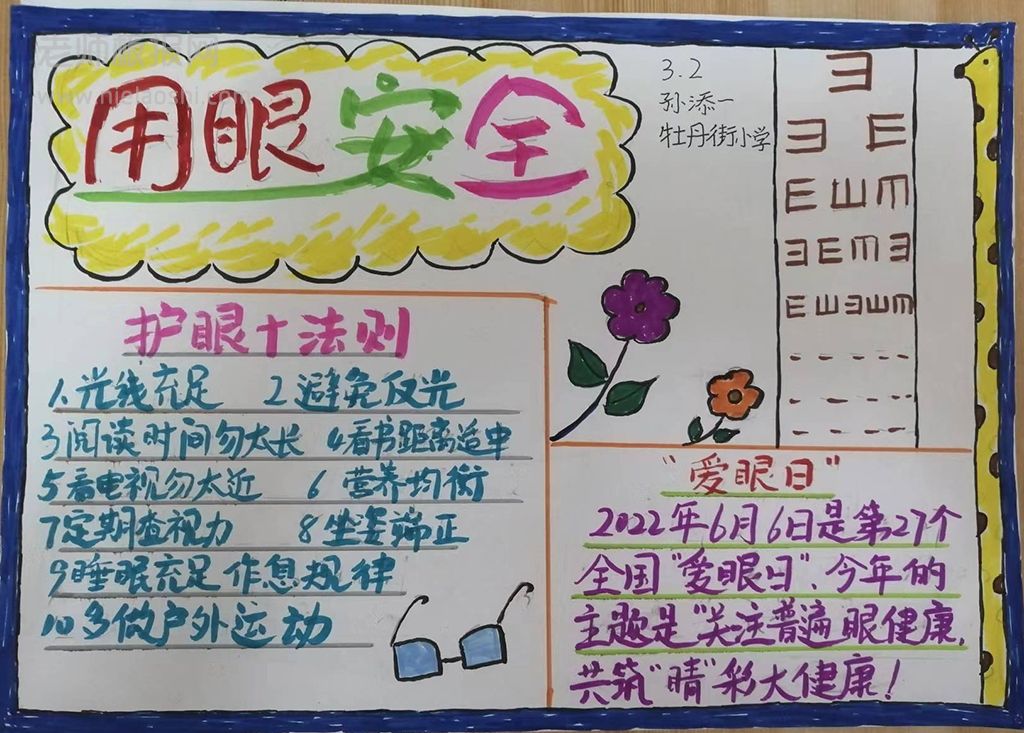 老师画报网
用眼安全
3.2
孙添一
牡丹街小学
护眼十法则
1、光线充足 2避免反光
3阅读时间勿太长 4看书距离适中
5看电视勿太近 6 营养均衡
7定期查视力 8坐姿端正
9睡眠充足作息规律
10多做户外运动
E
E E
E E E
E E E E
E E E E E
“爱眼日”
2022年6月6日是第27个
全国“爱眼日”、今年的
主题是“关注普遍眼健康，
共筑“睛”彩大健康！